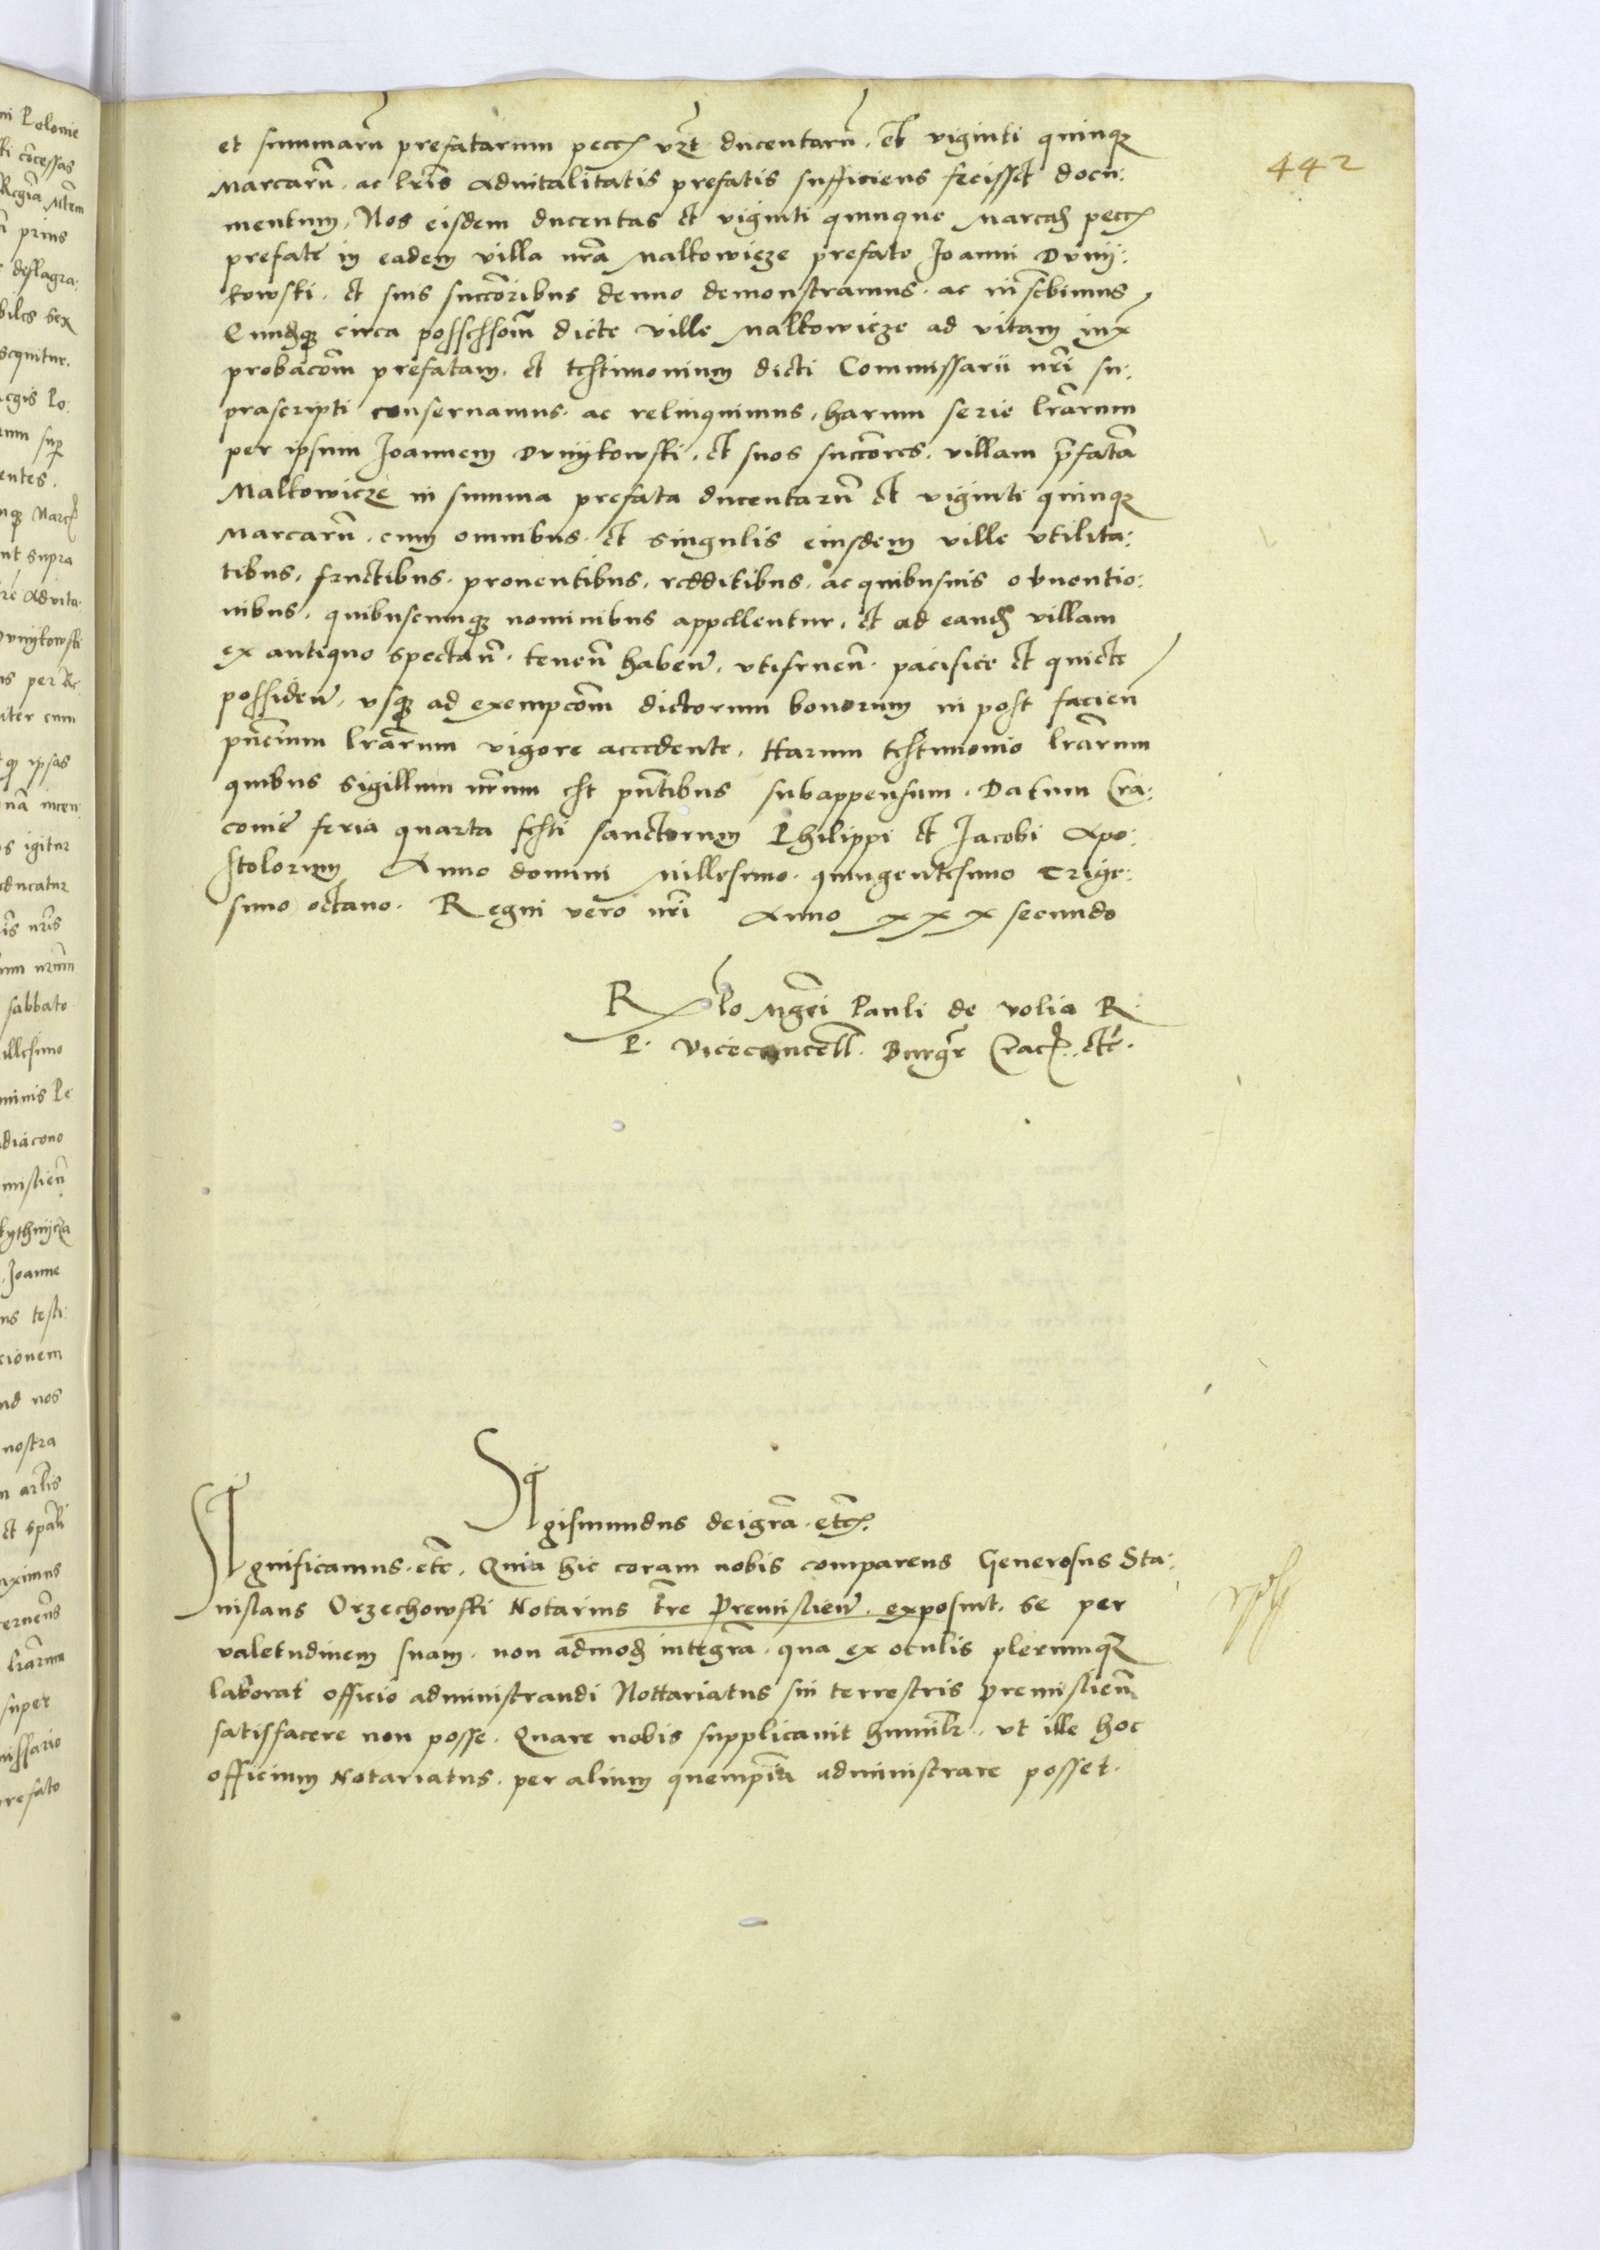 442
et summarū prefatarum pecc vzt ducentarū et viginti quinqꝫ
Marcarū ac lr̄is Advitalitatis prefatis sufficiens fecisset docu:
mentum, Nos eisdem ducentas et viginti quinque Marcas pecc
prefate in eadem villa nr̄a Malkowicze prefato Joanni Dvnij:
kowski et suis succōribus denuo demonstramus ac inscbimus
Eundqꝫ circa possessioīm dicte ville Malkowicze ad vitam iux
probācōm prefatam et testimonium dicti Commissarii nr̄i su:
prascripti conservamus ac relinquimus, harum serie lr̄arum
per ipsum Joannem Dvnijkowski, et suos succōres, villam p̄fatā
Malkowicze in summa prefata ducentarū et viginti quinqꝫ
Marcarū cum omnibus et singulis eiusdem ville vtilita:
tibus, fructibus proventibus, redditibus ac quibusuis obuentio:
nibus, quibuscunqꝫ nominibus appellentur, et ad eand villam
ex antiquo spectan̄ tenen̄ haben̄ vtifruen̄ pacifice et quiete
possiden̄ vsqꝫ ad exempcōm dictorum bonorum in post facien
pn̄cium lr̄arum vigore accedente, Harum testimonio lr̄arum
quibus sigillum nr̄um est pn̄tibus subappensum. Datum Cra:
covie feria quarta festi sanctorum Philippi et Jacobi Apo:
stolorum Anno domini Millesimo quingentesimo Trige:
simo octavo. Regni vero nr̄i Anno xxx secundo
R̄lo Mgci Pauli de volia R.
P. Vicecancell. Burgr Crac etc.
Sigismundus dei gr̄a etc.
Significamus etc. Quia hic coram nobis comparens Generosus Sta:
nislaus Orzechowski Notarius tr̄re Premislien̄ exposuit, se per
valetudinem suam non admod integrā qua ex oculis plerumqꝫ
laborat officio administrandi Nottariatus sui terrestris premislien̄
satisfacere non posse. Quare nobis supplicavit humilr vt ille hoc
officium Notariatus per alium quempiā administrare posset.